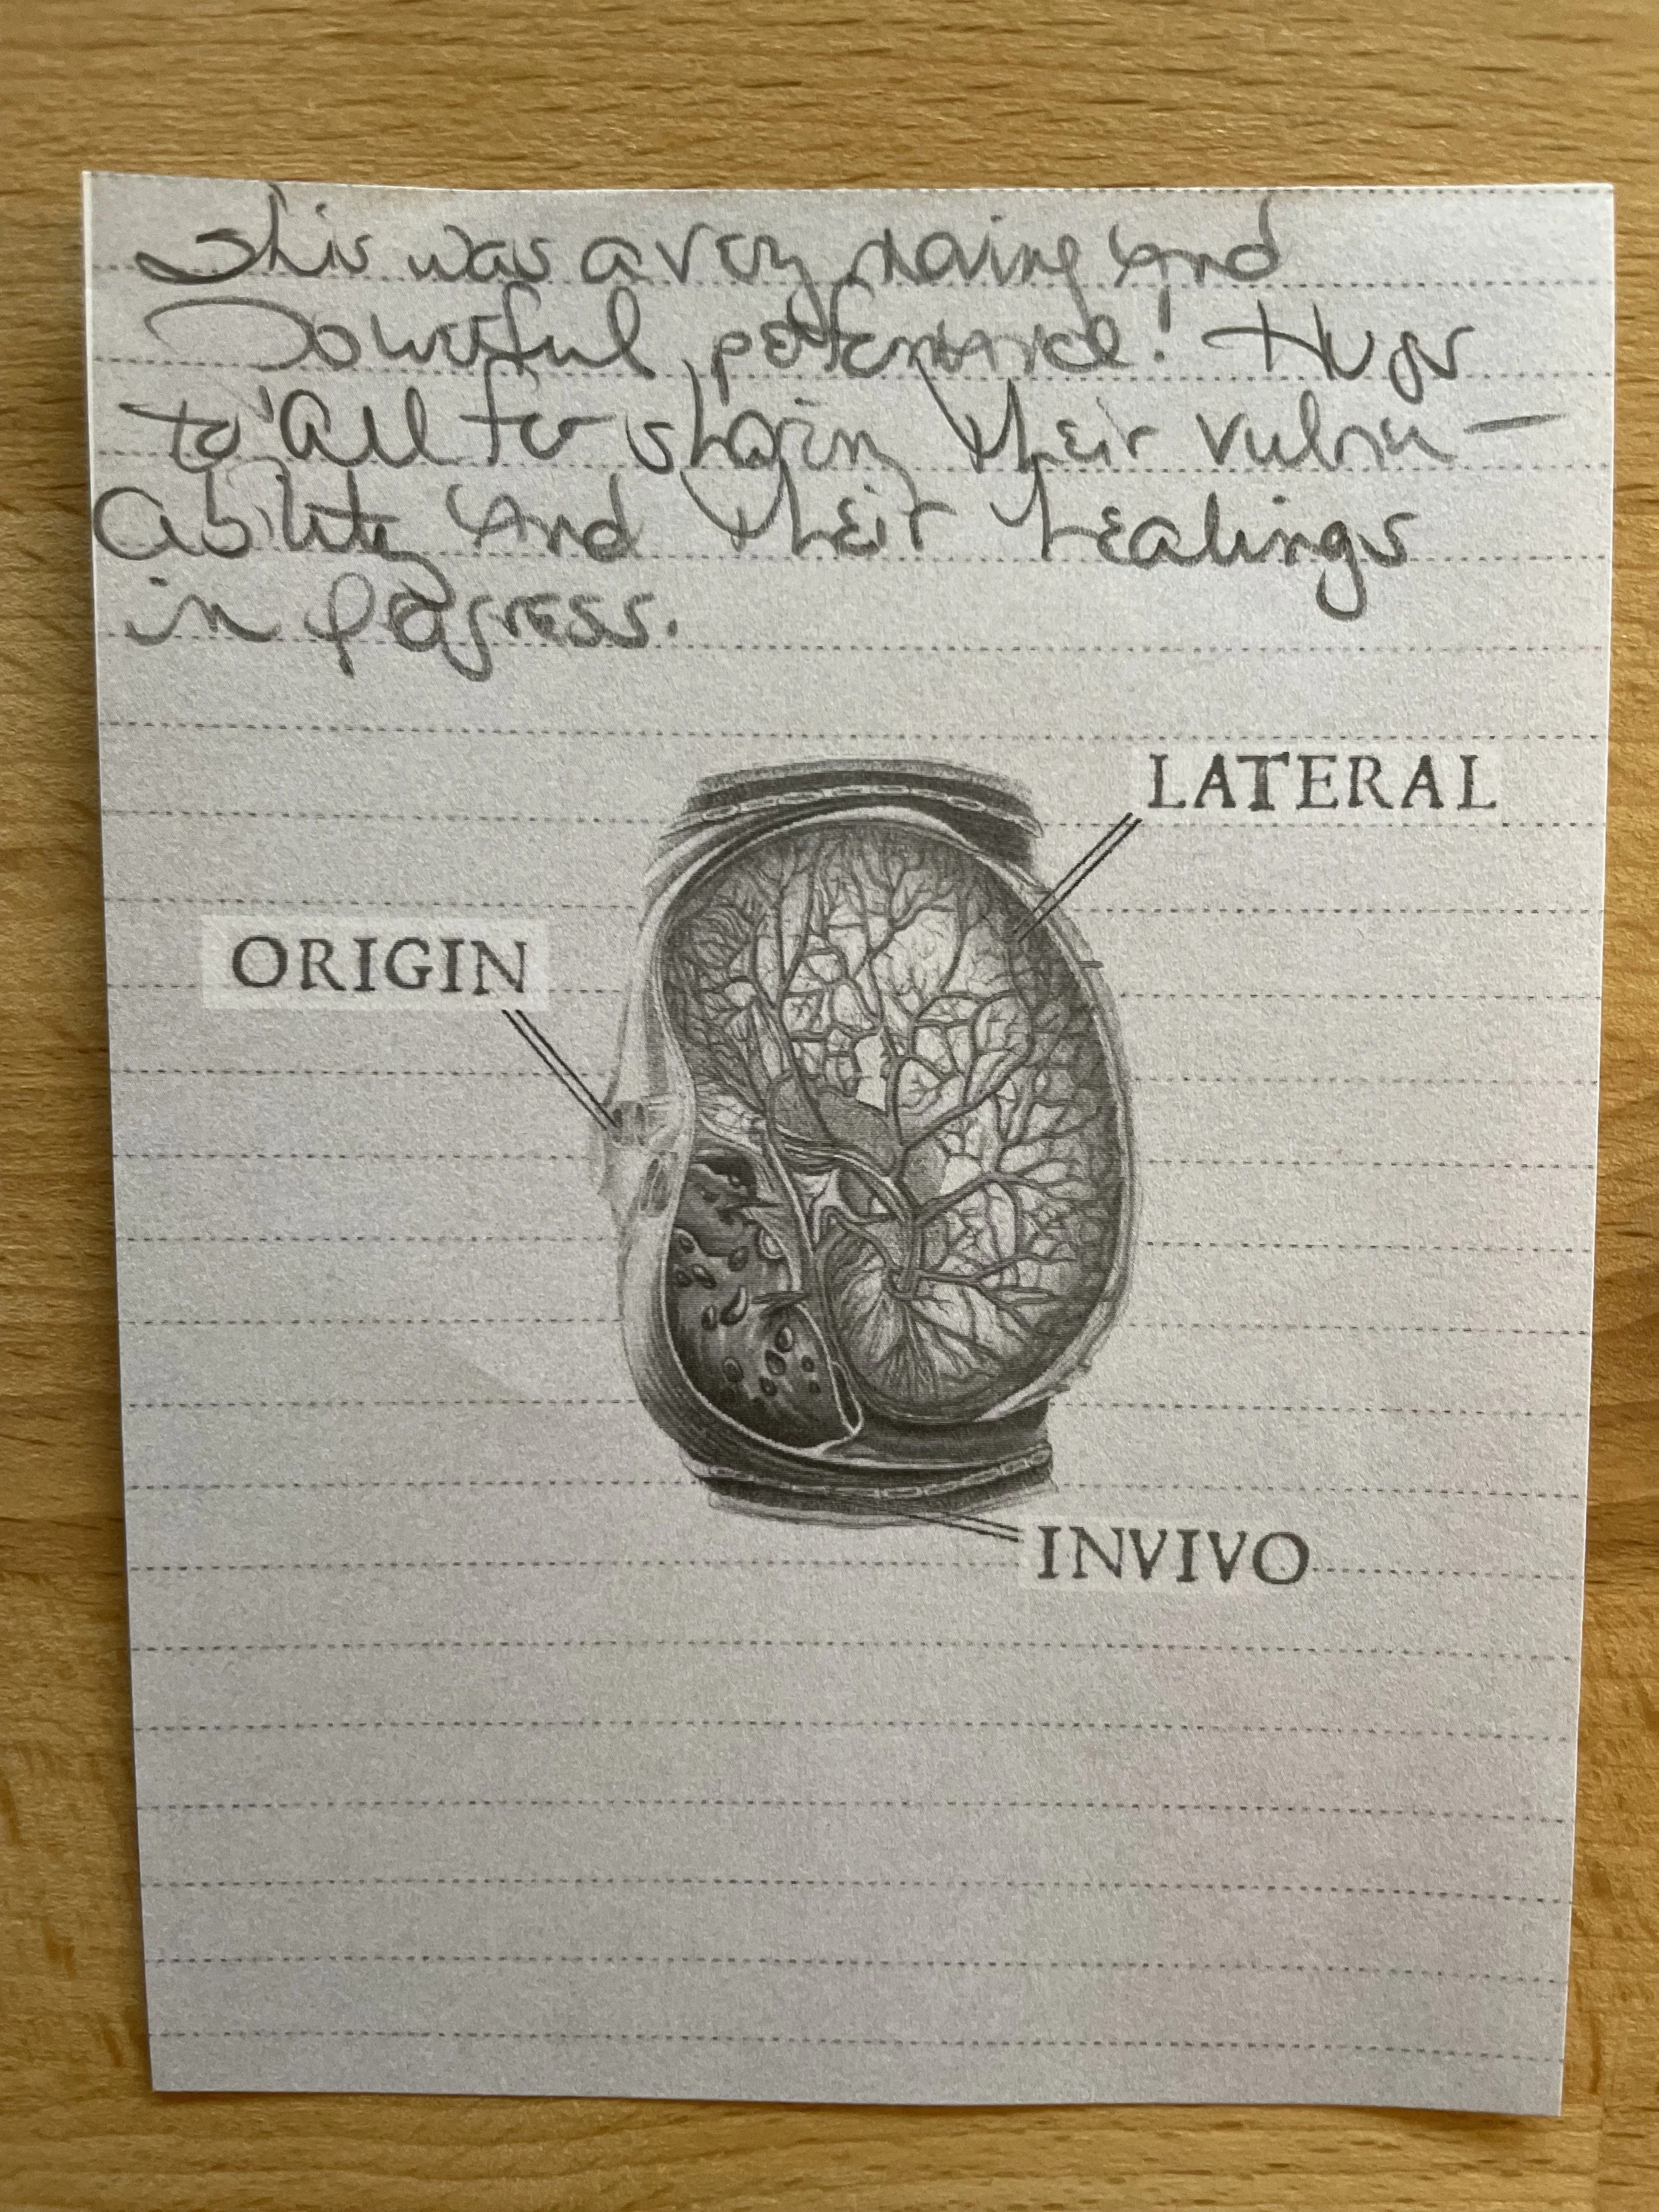 This was a very moving and
Powerful performance! Hugs
to all for sharing their vulner-
ability and their healings
in progress.
LATERAL
ORIGIN
INVIVO